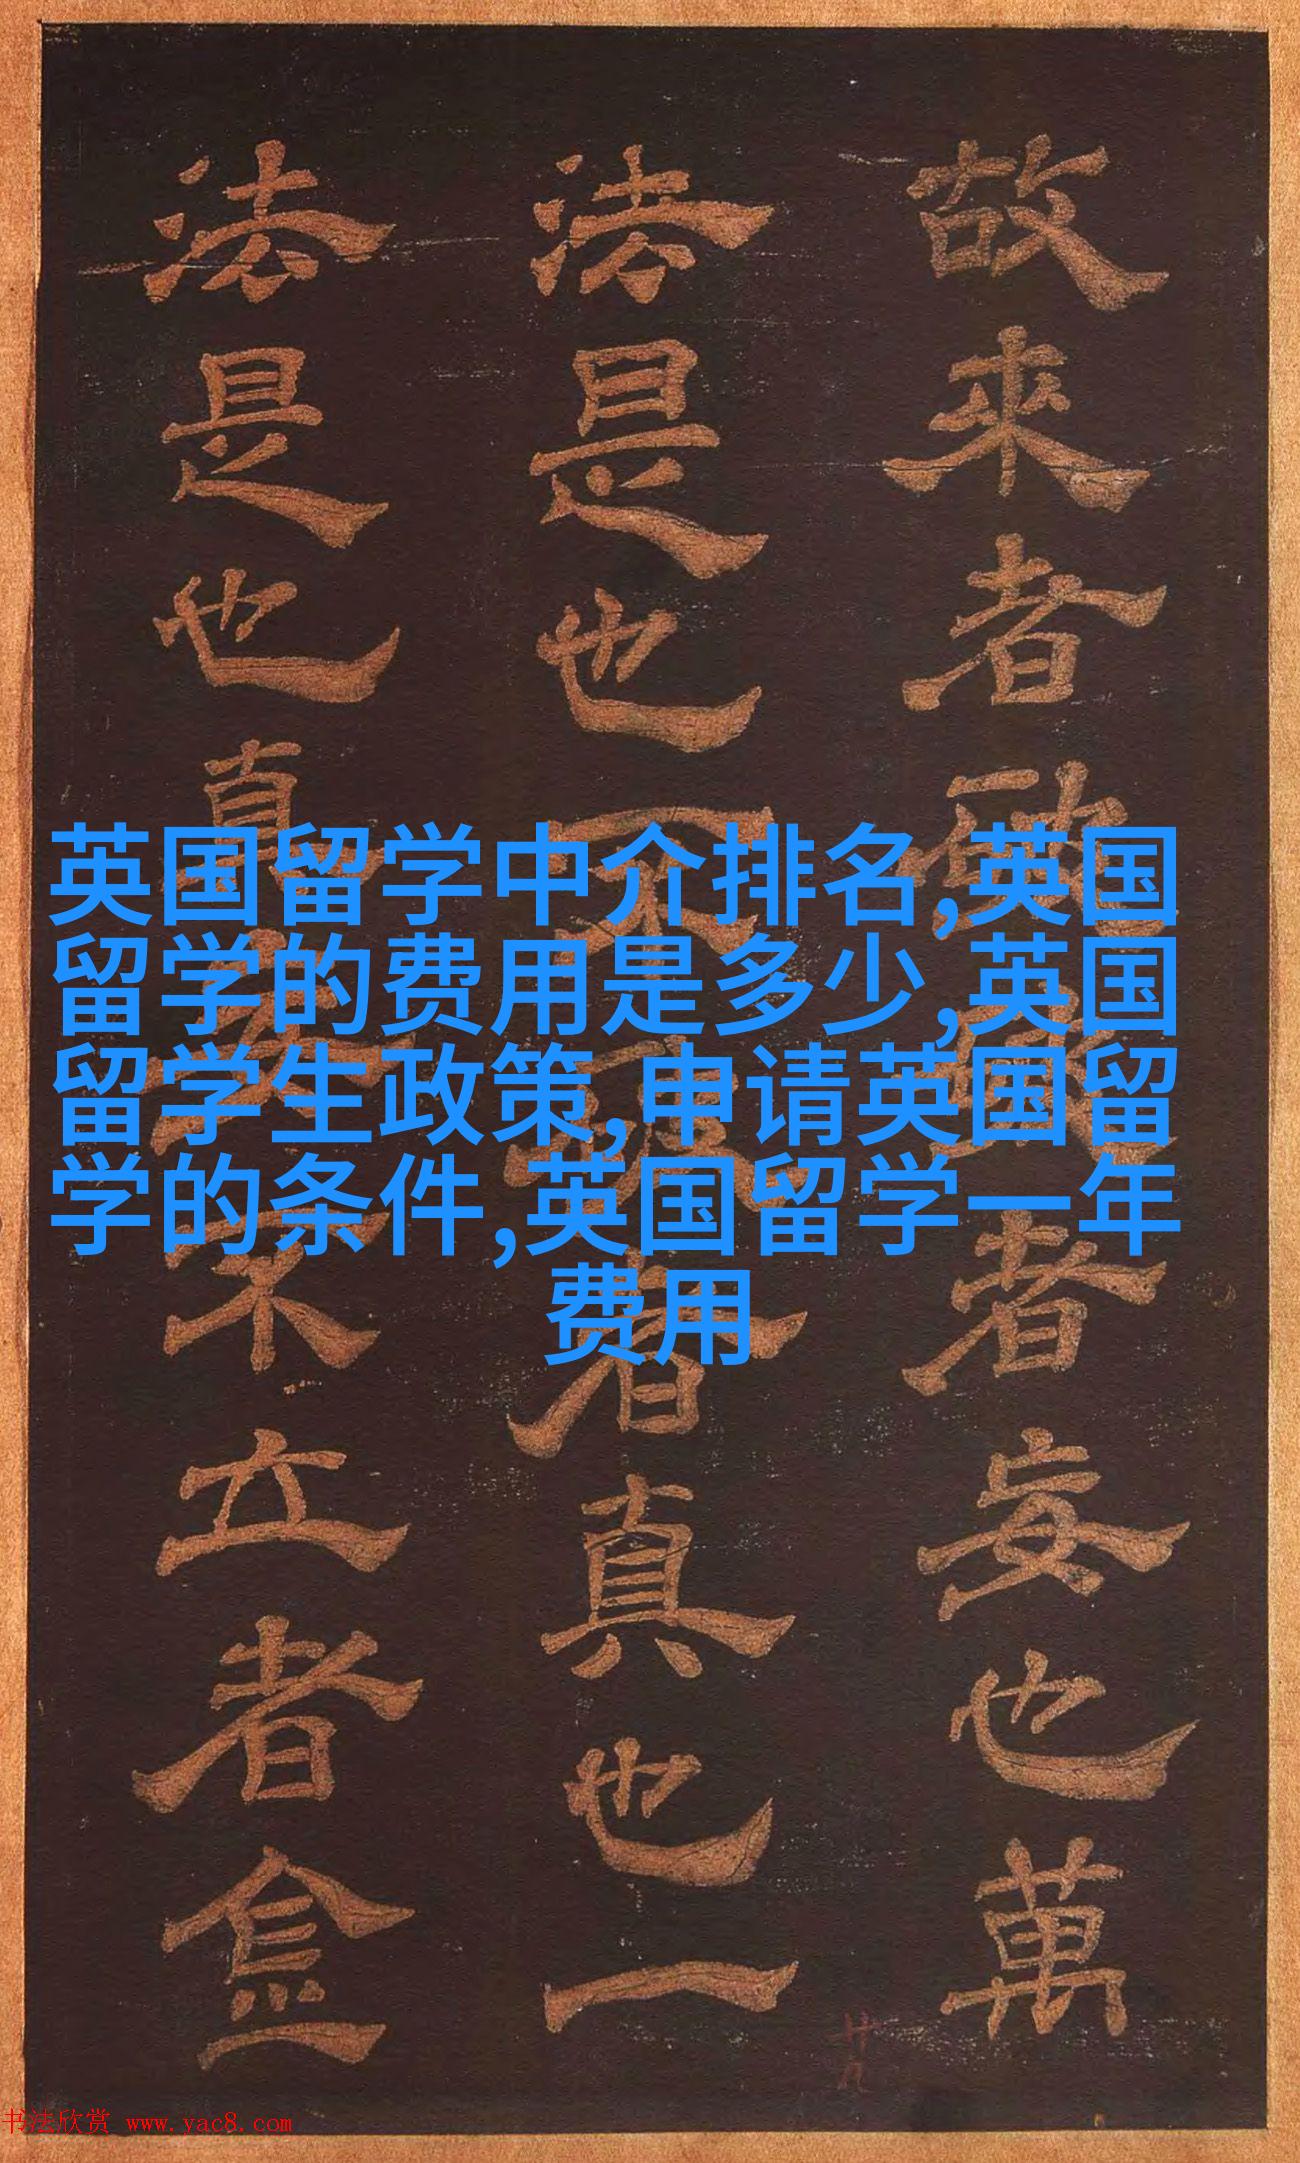 故來者者妄也萬
法是也不者真也一
法是也真不立者
英国留学中介排名,英国
留学的费用是多少,英国
留学生政策,申请英国留
学的条件,英国留学一年
费用
廿九
书法欣赏 www.yac8.com